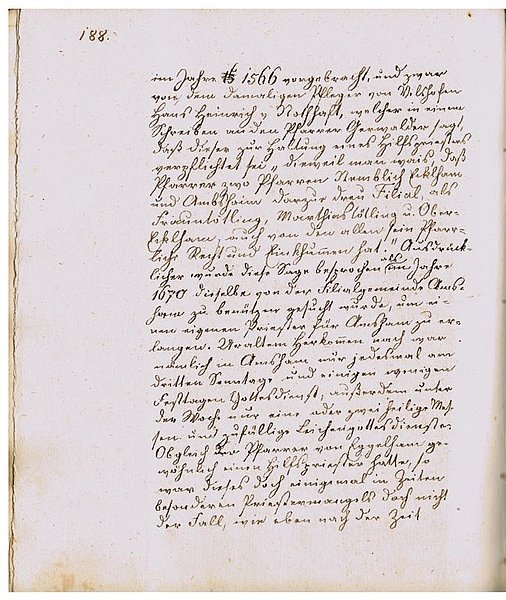 188.
im Jahre 1566 vorgebracht, und zwar
von dem damaligen Pfleger von Vilshofen
Hans Heinrich v Nothhaft, welcher in einem
Schreiben an den Pfarrer Gerwalder sagt,
daß dieser zur Haltung eines Hilfspriesters
verpflichtet sei „dieweil man wais, daß
Pfarrer zwo Pfarren Nemblich Ekhlham
und Ambshaim darzue dreu Filial, als
Frauntötling, Marthinstötling u. Ober-
Ekhlham, auch von den allen sein Pfarr-
liche Recht und Einkhumen hat." Ausdrück-
licher wurde diese Sage besprochen als im Jahre
1670 dieselbe von der Filialgemeinde Ams-
ham zu benützen gesucht wurde, um ei-
nen eigenen Priester für Amsham zu er-
langen. Uraltem Herkomen nach war
nämlich in Amsham nur jedesmal am
dritten Sonntage und einigen wenigen
Festtagen Gottesdienst; außerdem unter
der Woche nur eine oder zwei heilige Mes-
sen und zufällige Leichengottesdienste.
Obgleich der Pfarrer von Egglham ge-
wöhnlich einen Hilfspriester hatte, so
war dieses doch einigemal in Zeiten
besonderen Priestermangels doch nicht
der Fall, wie eben nach der Zeit